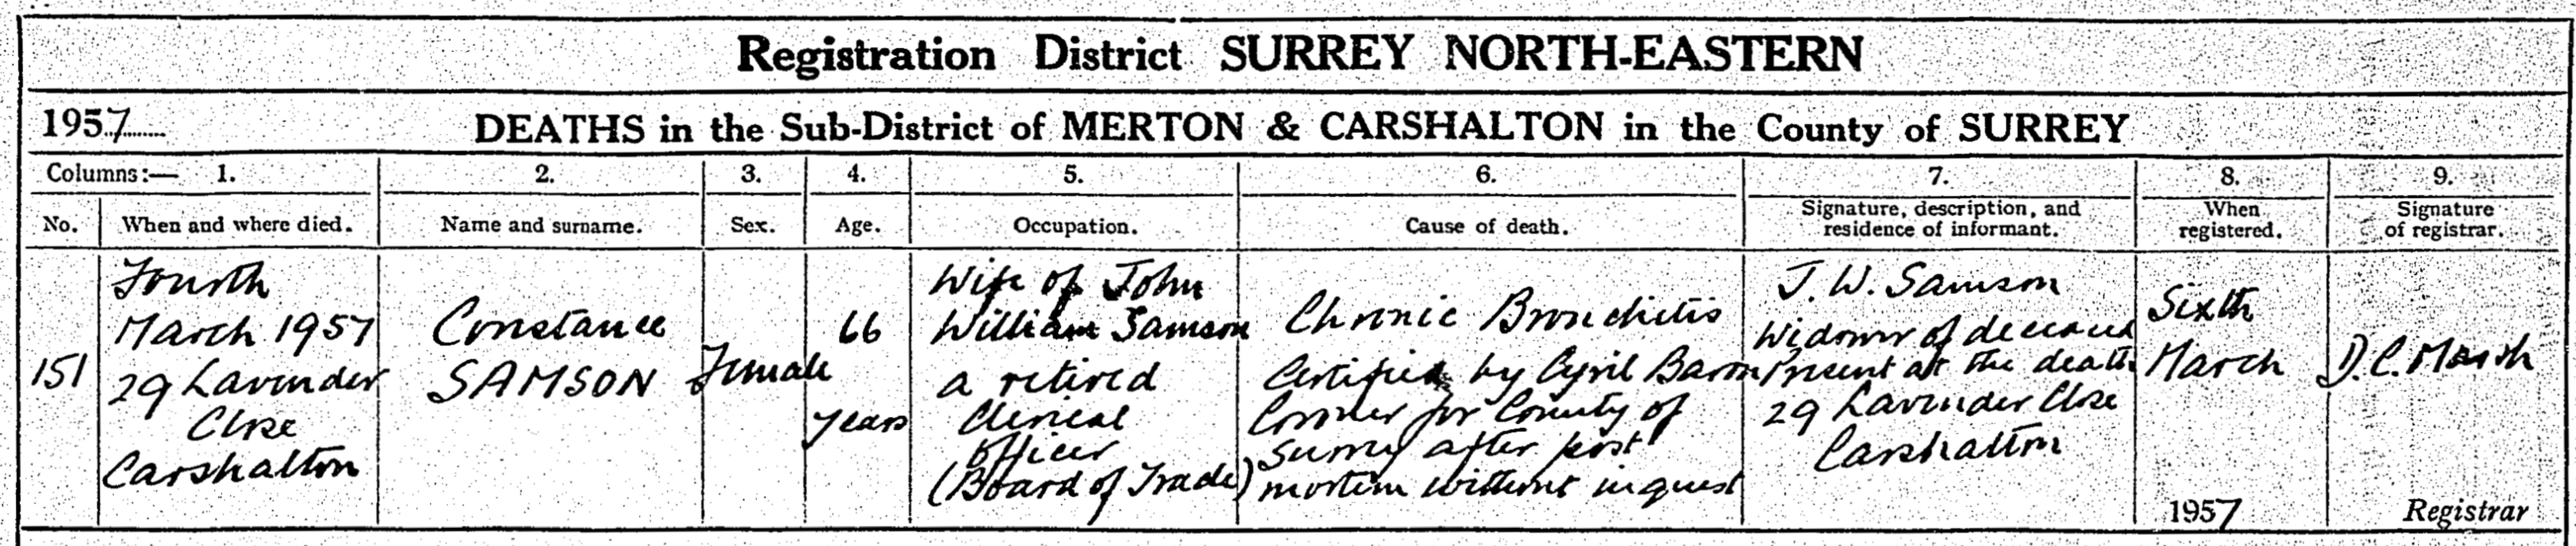 Registration District SURREY NORTH-EASTERN
1957 DEATHS in the Sub-District of MERTON & CARSHALTON in the County of SURREY
Columns:— 1. 2. 3. 4. 5. 6. 7. 8. 9.
No. When and where died. Name and surname. Sex. Age. Occupation. Cause of death. Signature, description, and residence of informant. When registered. Signature of registrar.
151
Fourth
March 1957
29 Lavender
Close
Carshalton
Constance
SAMSON
Female
66
years
Wife of John
William Samson
a retired
Clerical
officer
(Board of Trade)
Chronic Bronchitis
Certified by Cyril Baron
Coroner for County of
Surrey after post
mortem without inquest
J. W. Samson
Widower of deceased
Present at the death
29 Lavender Close
Carshalton
Sixth
March
1957
D. C. Marsh
Registrar